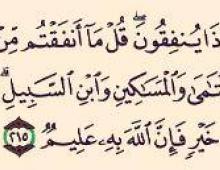 ذَا يُنفِقُونَۖ قُلۡ مَآ أَنفَقۡتُم مِّنۡ
تَٰمَىٰ وَٱلۡمَسَٰكِينِ وَٱبۡنِ ٱلسَّبِيلِۗ
خَيۡرٖ فَإِنَّ ٱللَّهَ بِهِۦ عَلِيمٞ ٢١٥